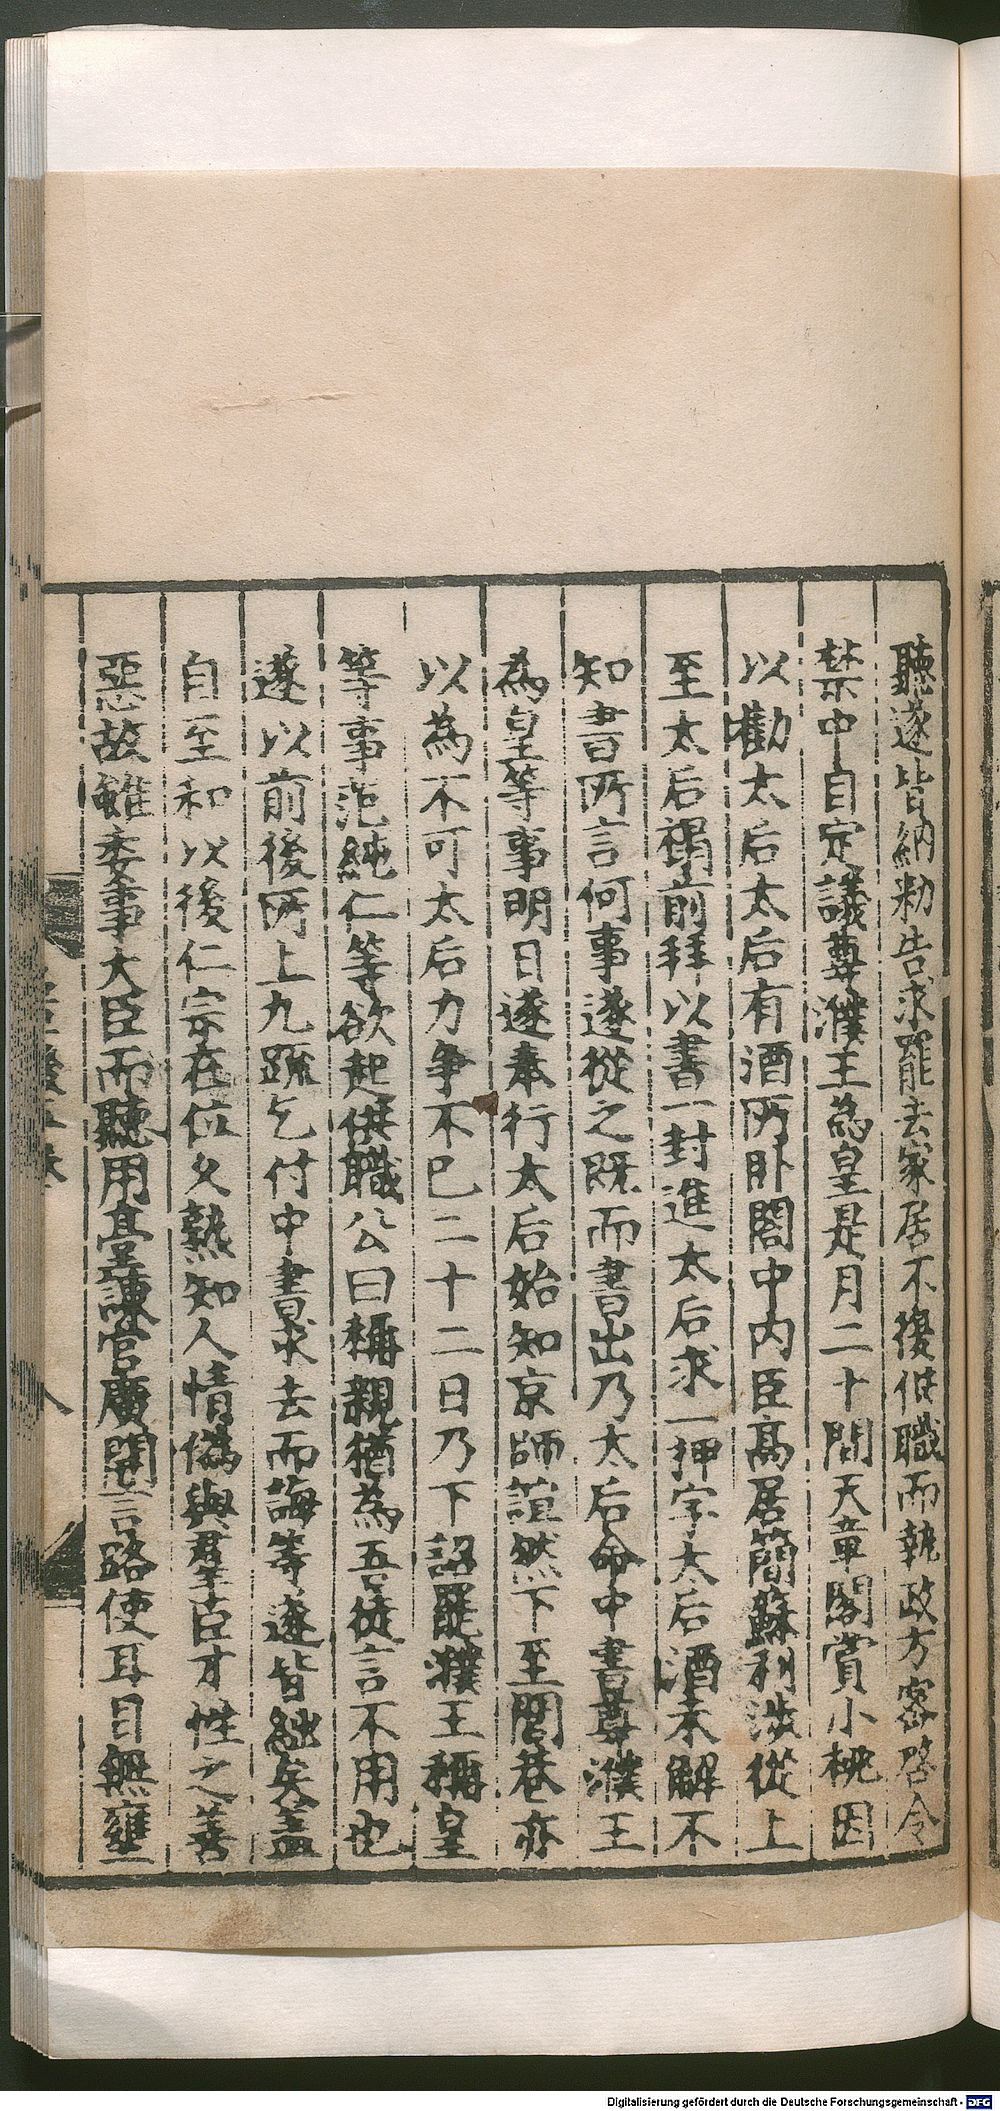 聽遂皆納勑告求罷去家居不復供職而執政方密啓令
禁中自定議尊濮王為皇是月二十間天章閣賞小桃因
以勸太后太后有酒所卧閤中内臣髙居簡蘇利渉從上
至太后禢前拜以書一封進太后求一押字太后酒未解不
知書所言何事遂從之旣而書出乃太后命中書尊濮王
為皇等事明日遂奉行太后始知京師諠然下至閭巷亦
以為不可太后力爭不已二十二日乃下詔罷濮王稱皇
等事范純仁等欲起供職公曰稱親猶為吾徒言不用也
遂以前後所上九疏乞付中書求去而誨等遂皆絀矣盖
自至和以後仁宗在位乆熟知人情偽與羣臣才性之善
惡故雖委事大臣而聽用臺諫官廣開言路使耳目無壅
八
Digitalisierung gefördert durch die Deutsche Forschungsgemeinschaft - DFG